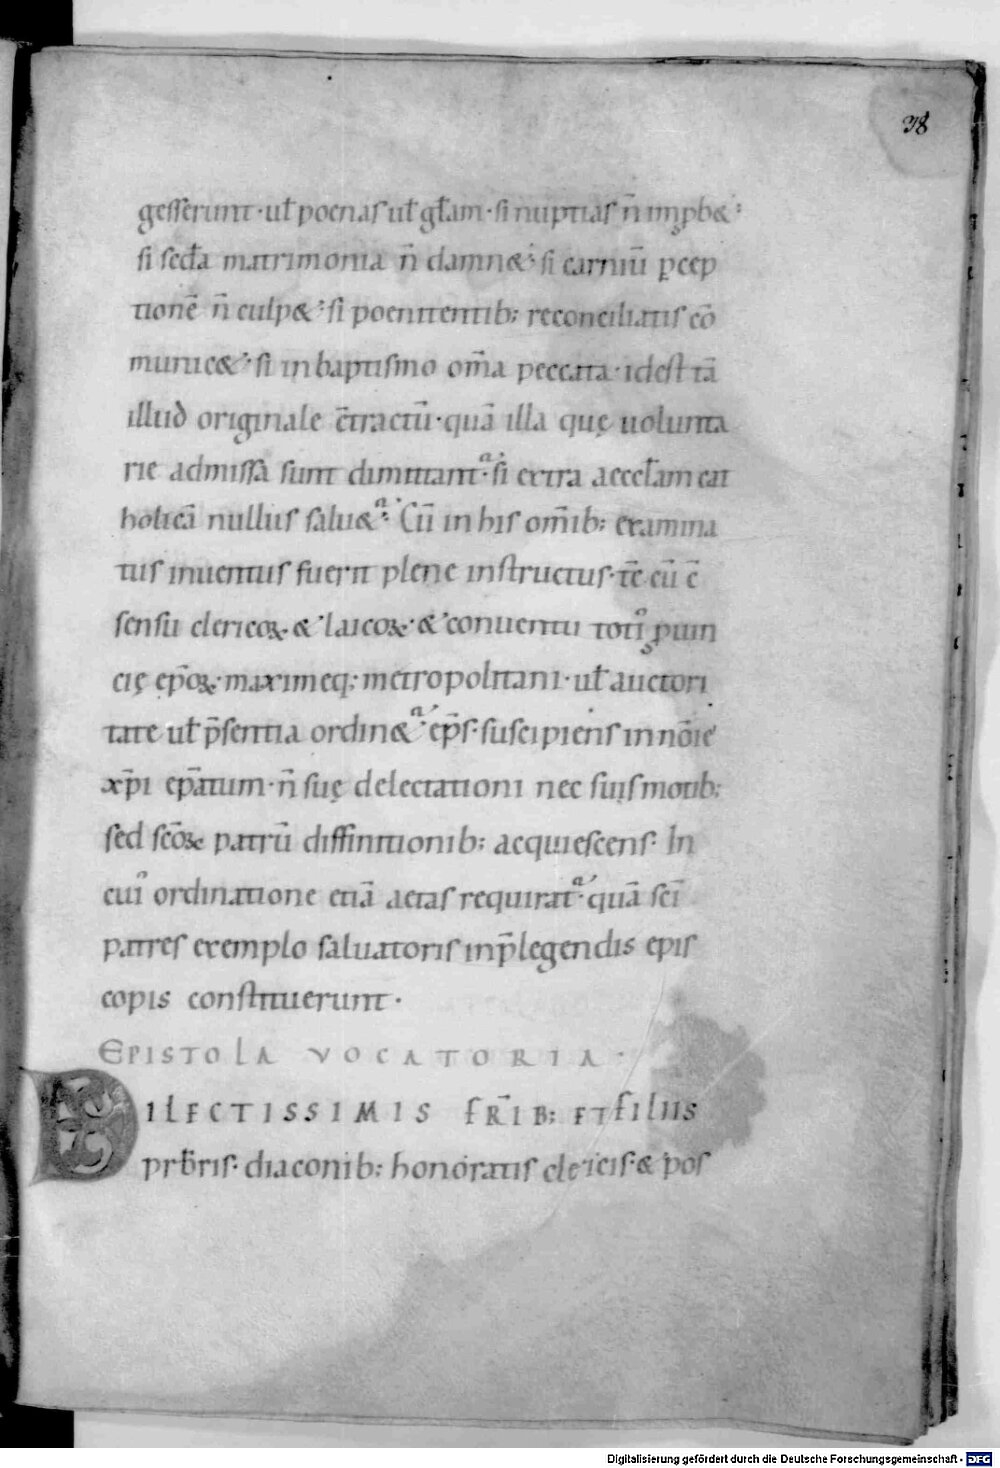 38
gesserunt· ul̄ poenas ul̄ gl̄am· si nuptias n̄ inꝓb&·
si scd̄a matrimonia n̄ damn&· si carniū ꝑcep
tionē n̄ culp&· si poenitentib; reconciliatis cō
munic&· si in baptismo om̄a peccata· id est tā
illud originale c̄tractū· quā illa quę uolunta
rie admissa sunt dimittant᷑· si extra aeccl̄am cat
holicā nullus salu&᷑· Cū in his om̄ib; examina
tus inuentus fuerit plene instructus· tc̄ cū c̄
sensu clericoꝝ· & laicoꝝ· & conuentu toti᷒ ꝓuin
cię ep̄oꝝ· maximeq; metropolitani· ul̄ auctori
tate ul̄ p̄sentia ordin&᷑· ep̄s· suscipiens in nōīe
xp̄i ep̄atum· n̄ suę delectationi nec suis motib;
sed sc̄oꝝ patrū diffinitionib; acquiescens· In
cui᷒ ordinatione etiā aetas requirat᷑· quā sc̄i
patres exemplo saluatoris in p̄legendis epis
copis constituerunt·
EPISTOLA VOCATORIA·
DILECTISSIMIS FR̄IB; ET FILIIS
prb̄ris· diaconib; honoratis clericis· & pos
Digitalisierung gefördert durch die Deutsche Forschungsgemeinschaft - DFG